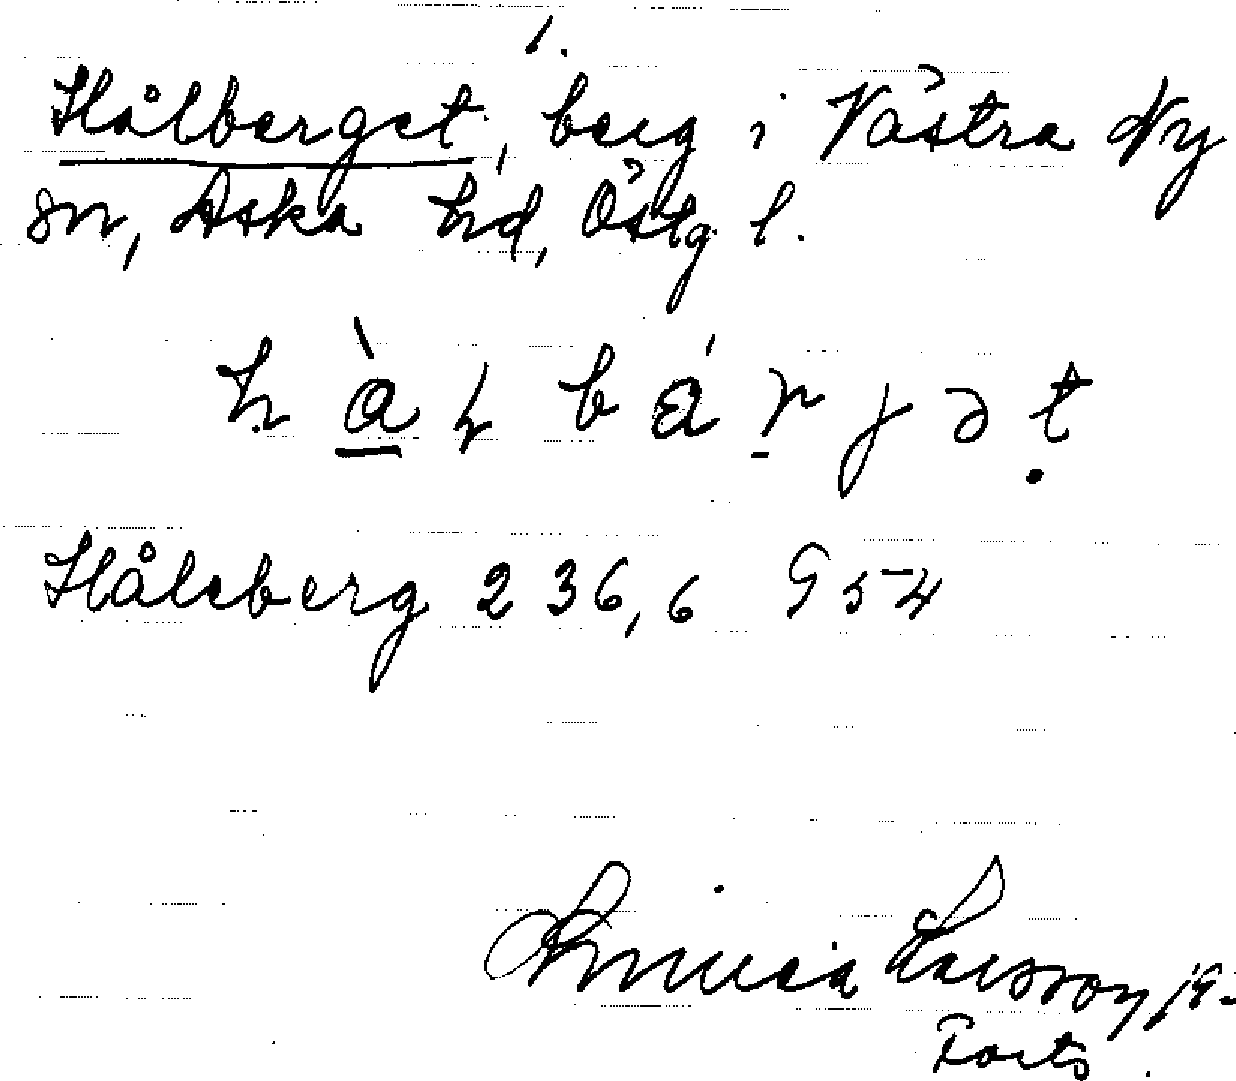 1.
Hålberget, berg i Västra Ny
sn, Aska hd, Östg. l.
h à ɫ b á r j ə t
Hålsberg 236,6 954
Larsson
Forts.